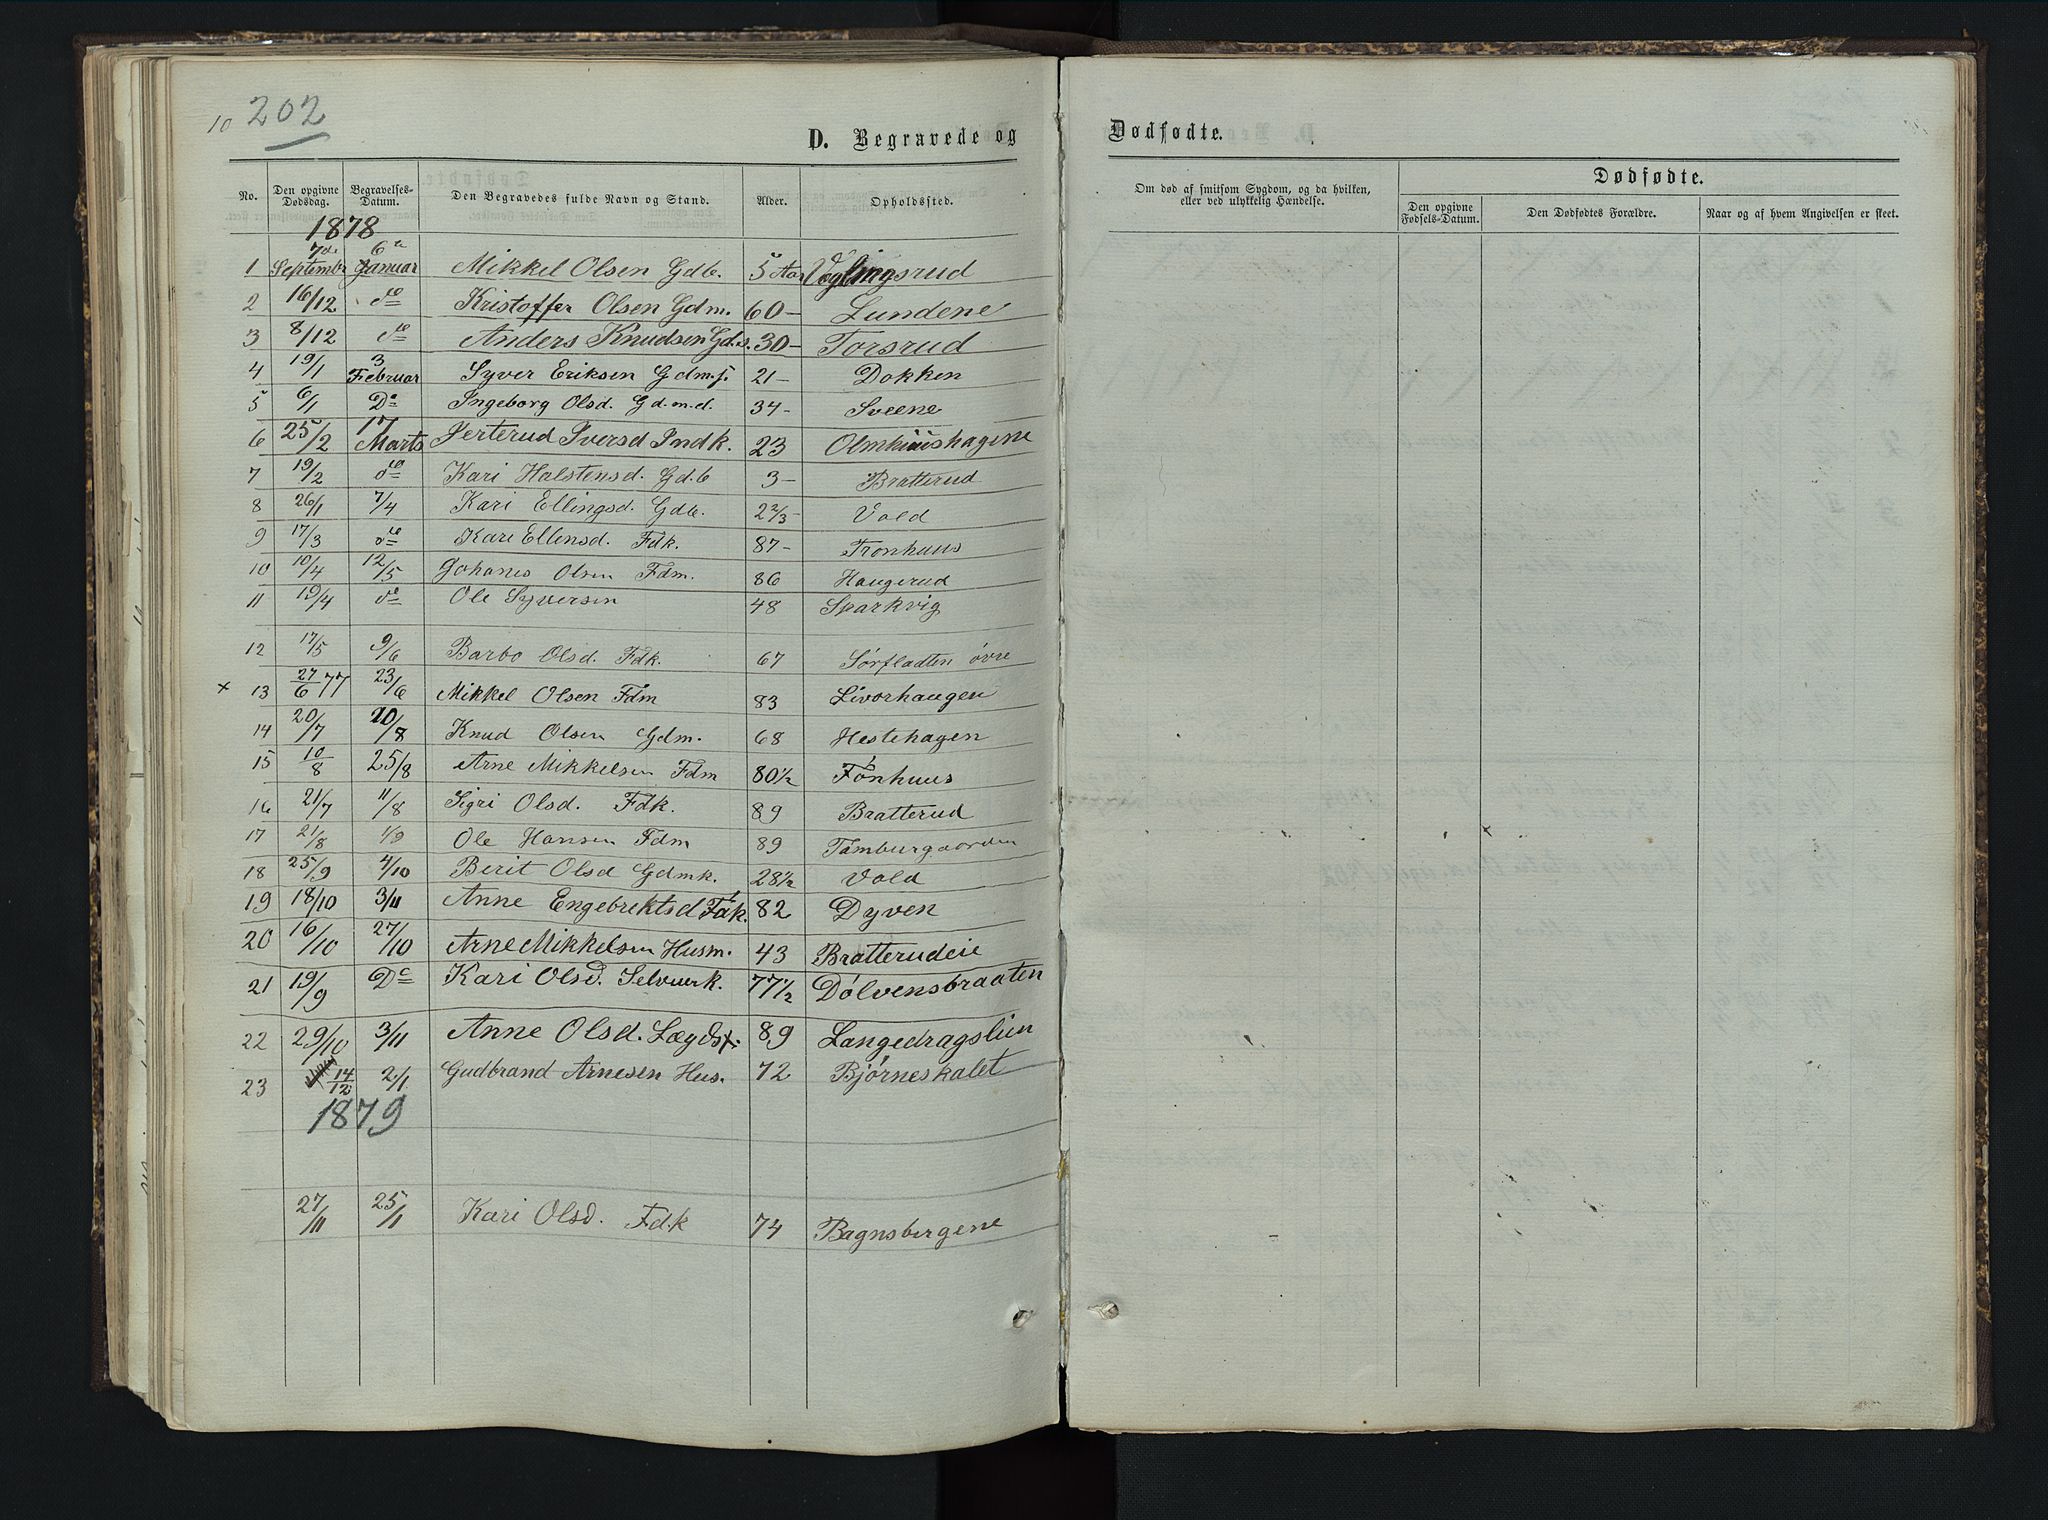 10 202
D. Begravede og Dødfødte.
No. Den opgivne Dødsdag. Begravelses-Datum. Den Begravedes fulde Navn og Stand. Alder. Opholdssted.
Om død af smitsom Sygdom, og da hvilken, eller ved ulykkelig Hændelse.
Dødfødte.
Den opgivne Fødsels-Datum. Den Dødfødtes Forældre. Naar og af hvem Angivelsen er skeet.
1878
1 7de Septembr 6te Januar Mikkel Olsen Gdb. 5 Aar
2 16/12 do Kristoffer Olsen Gdm. 60 – Lundene
3 8/12 do Anders Knudsen Gd.s. 30 – Torsrud
4 19/1 3 Februar Syver Eriksen Gdm.f. 21 – Dokken
5 6/1 Do Ingeborg Olsd. Gd.m.d. 34 – Sveene
6 25/2 17 Marts Jerterud Iversd Indk. 23
7 19/2 do Kari Halstensd. Gd.b 3 – Bratterud
8 26/1 7/4 Kari Ellingsd. Gdb. 2 2/3 – Vold
9 17/3 do Kari Ellensd. Fdk. 87 – Tronhuus
10 10/4 12/5 Johanes Olsen Fdm. 86 Haugerud
11 19/4 do Ole Syversen 48 Sparkvig
12 17/5 9/6 Barbo Olsd. Fdk. 67 Sørfladten øvre
x 13 27/6 77 23/6 Mikkel Olsen Fdm 83 Livorhaugen
14 20/7 20/8 Knud Olsen Gdm. 68 Hestehagen
15 10/8 25/8 Arne Mikkelsen Fdm 80 1/2 Fønhuus
16 21/7 11/8 Sigri Olsd. Fdk. 89 Bratterud
17 21/8 1/9 Ole Hansen Fdm 89 Tamburgaarden
18 25/9 4/10 Berit Olsd Gdmk. 28 1/2 Vold
19 18/10 3/11 Anne Engebrektsd Fdk. 82 Dyven
20 16/10 27/10 Arne Mikkelsen Husm. 43 Bratterudeie
21 19/9 Do Kari Olsd. Selvuerk. 77 1/2 Dølvensbraaten
22 29/10 3/11 Anne Olsd. Lægdsl. 89 Langedragslien
23 14/12 2/1 Gudbrand Arnesen Hus. 72 Bjørneskalet
1879
27/11 25/1 Kari Olsd. Fdk 74 Bagnsbergene